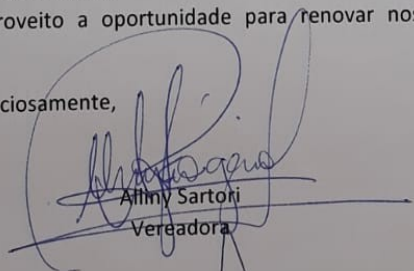 roveito a oportunidade para renovar nos
ciosamente,
Alliny Sartori
Vereadora